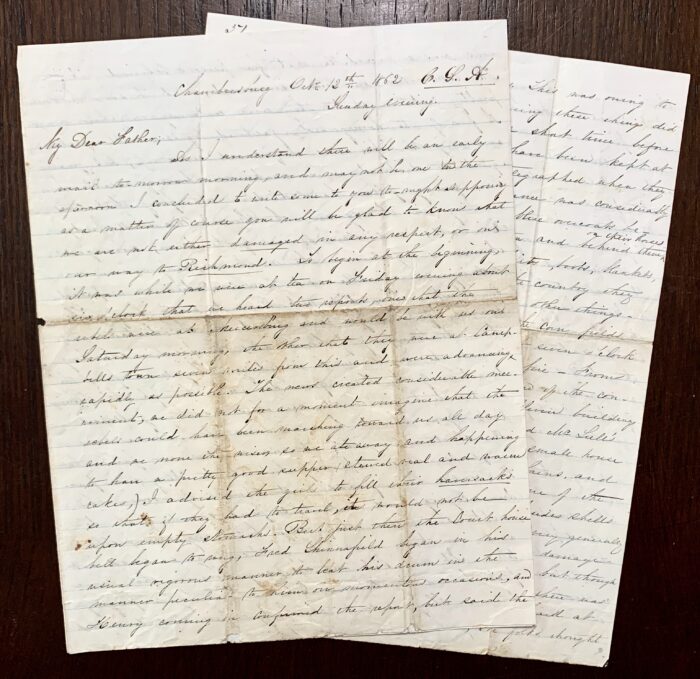 Chambersburg Oct. 12th 1862 C. S. A.
Sunday Evening.
My Dear Father;
As I understand there will be an early
mail to-morrow morning, and may not be one in the
afternoon I concluded to write some to you to-night supposing
as a matter of course you will be glad to know that
we are not either damaged in any respect, or on
our way to Richmond. To begin at the beginning,
it was while we were at tea on Friday evening about
six o'clock that we heard two reports, one that the
rebels were at Mercersburg and would be with us on
Saturday morning, the other that they were at Camp-
bells town seven miles from this and were advancing
rapidly as possible. The news created considerable mer-
riment, we did not for a moment imagine that the
rebels could have been marching toward us all day
and we none the wiser, so we ate away and happening
to have a pretty good supper, (stewed veal and warm
cakes,) I advised the girls to fill their haversacks
so that if they had to travel, it would not be
upon empty stomachs. But just then the Court house
bell began to ring, Fred Shinnafield began in his
usual vigorous manner to beat his drum in the
manner peculiar to him on momentous occasions, and
Henry coming in confirmed the report, but said the
37
This was owing to
these things did
short time before
have been kept at
graphed when they
was considerably
overcoats &
their horses
and behind them,
boots, blankets
country they
other things
the corn fields
seven o'clock
fire - From
of the con-
building
house
and
of the
shells
generally
damage
but though
there was
at
thought